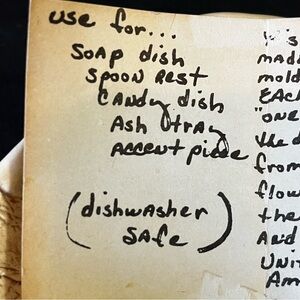 use for...
SOAP dish
SPOON REST
CANdy dish
Ash tray
Accent piece
(dishwAsher
SAfe)
made
mold
EACh
"one
the d
from
flow
the
And
Unit
Am